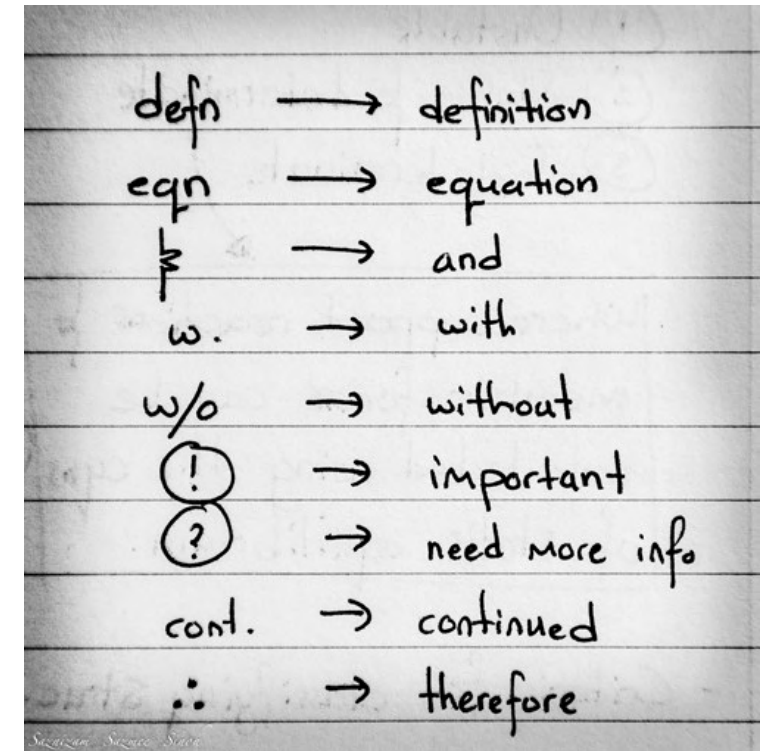 defn → definition
eqn → equation
→ and
w. → with
w/o → without
! → important
? → need more info
cont. → continued
∴ → therefore